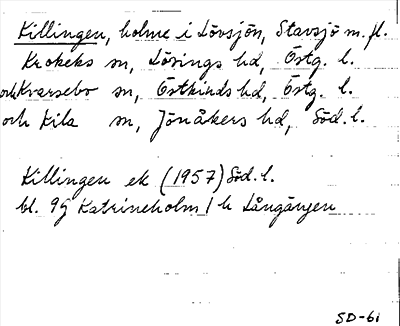 Killingen, holme i Lövsjön, Stavsjö m. fl.
Krokeks sn, Lösings hd, Östg. l.
och Kvarsebo sn, Östkinds hd, Östg. l.
och Kila sn, Jönåkers hd, Söd. l.
Killingen ek (1957) Söd. l.
bl. 9G Katrineholm / h Långängen
SD-6i